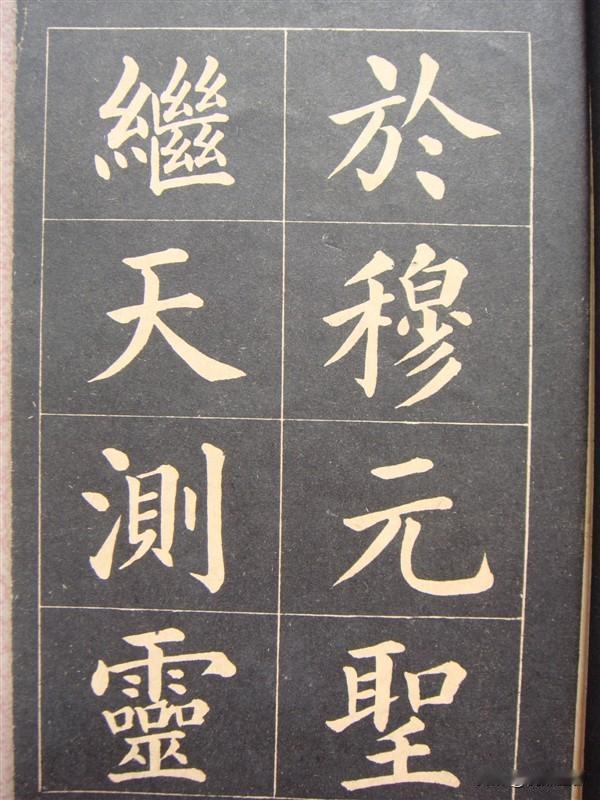 於穆元聖
繼天測靈